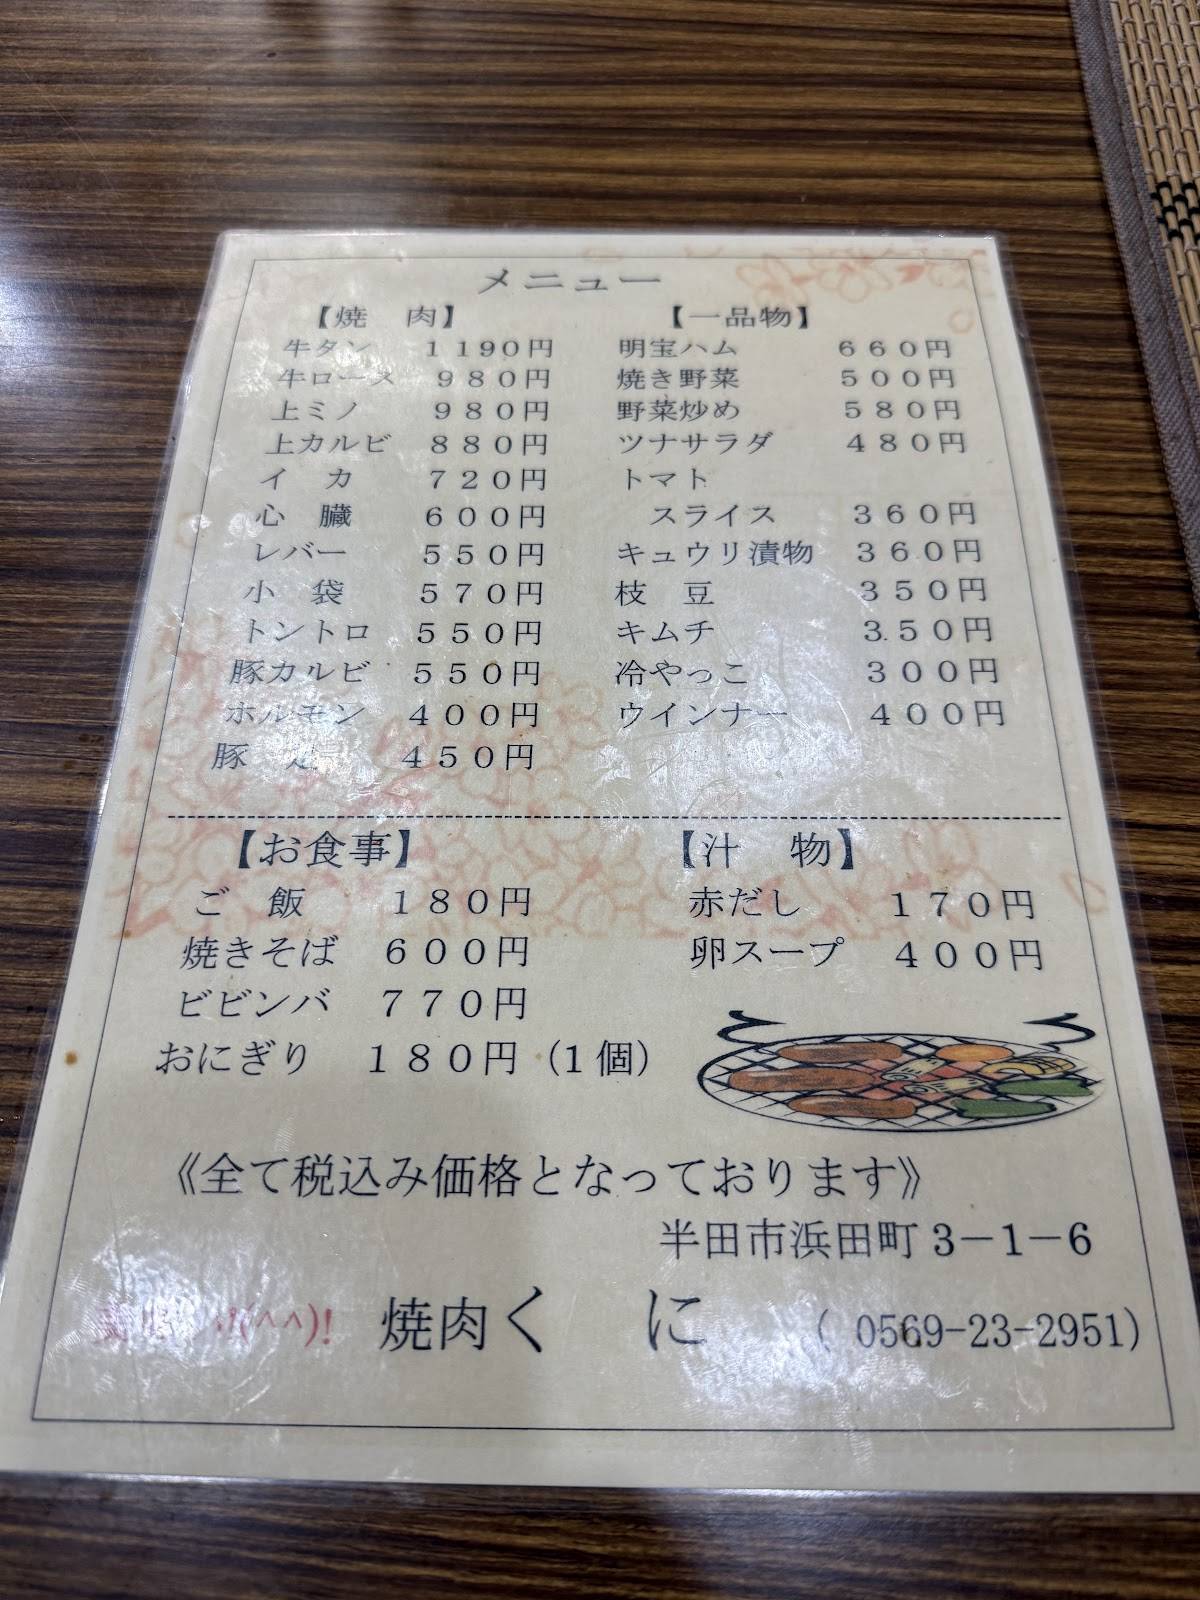 メニュー
【焼　肉】
牛タン　１１９０円
牛ロース　９８０円
上ミノ　９８０円
上カルビ　８８０円
イ　カ　７２０円
心　臓　６００円
レバー　５５０円
小　袋　５７０円
トントロ　５５０円
豚カルビ　５５０円
ホルモン　４００円
豚　足　４５０円
【一品物】
明宝ハム　６６０円
焼き野菜　５００円
野菜炒め　５８０円
ツナサラダ　４８０円
トマト
スライス　３６０円
キュウリ漬物　３６０円
枝　豆　３５０円
キムチ　３５０円
冷やっこ　３００円
ウインナー　４００円
【お食事】
ご　飯　１８０円
焼きそば　６００円
ビビンバ　７７０円
おにぎり　１８０円（１個）
【汁　物】
赤だし　１７０円
卵スープ　４００円
《全て税込み価格となっております》
半田市浜田町３－１－６
(^^)!　焼肉く　に　（ 0569-23-2951）